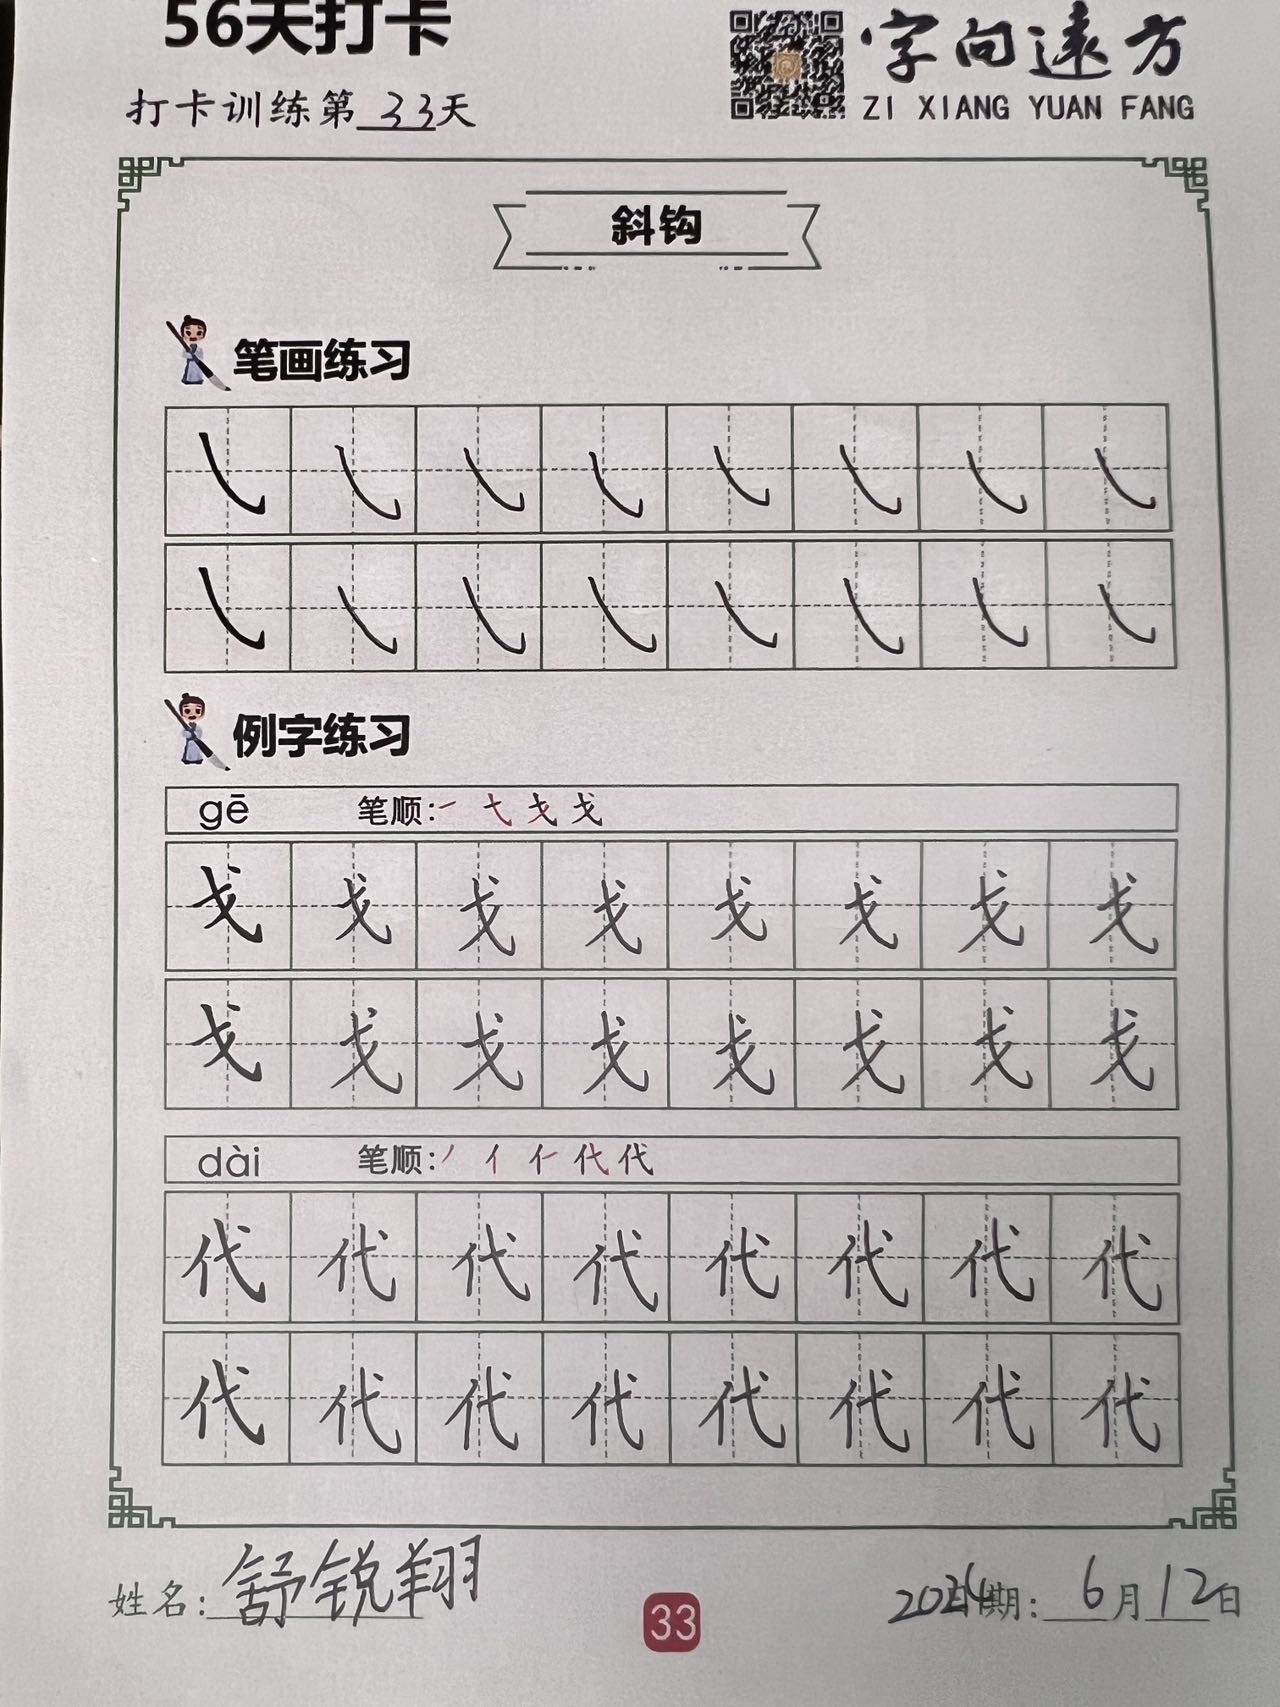 56天打卡
打卡训练第33天
字向遠方
ZI XIANG YUAN FANG
斜钩
笔画练习
㇂ ㇂ ㇂ ㇂ ㇂ ㇂ ㇂ ㇂
㇂ ㇂ ㇂ ㇂ ㇂ ㇂ ㇂ ㇂
例字练习
gē 笔顺: ㇀ 弋 戈 戈
戈 戈 戈 戈 戈 戈 戈 戈
戈 戈 戈 戈 戈 戈 戈 戈
dài 笔顺: ㇓ 亻 仁 代 代
代 代 代 代 代 代 代 代
代 代 代 代 代 代 代 代
姓名: 舒锐翔
33
2024日期: 6月12日